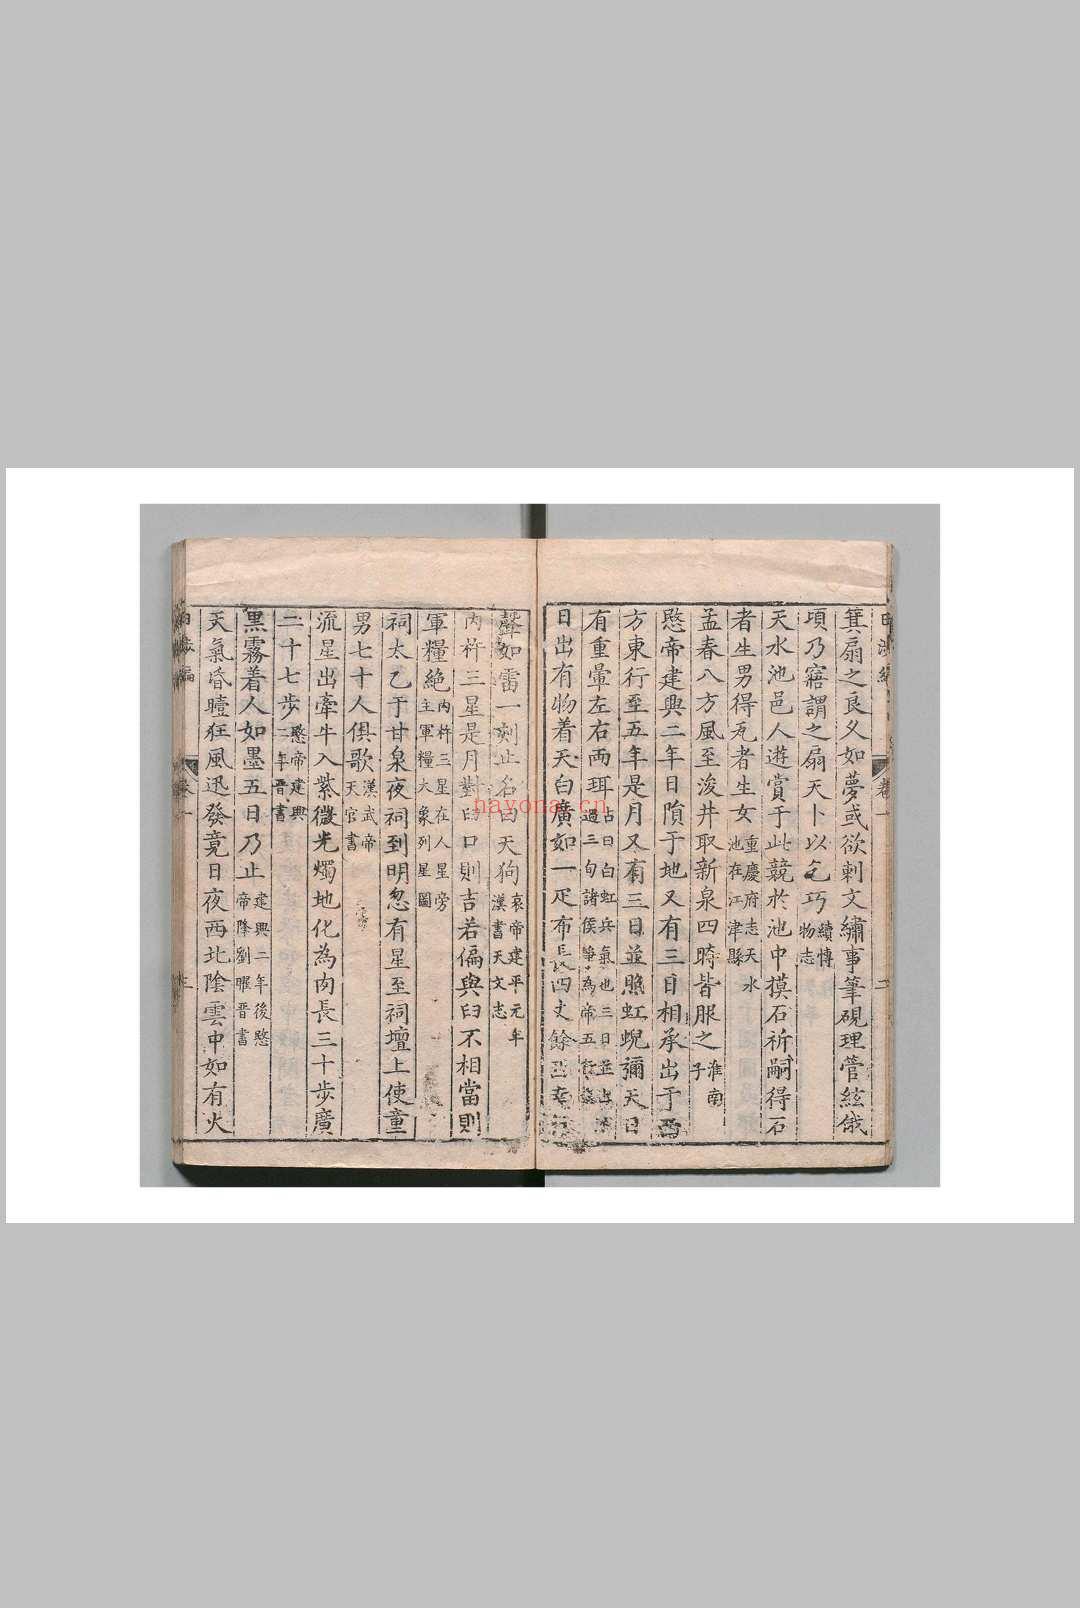 箕扇之良久如夢或欲刺文繡事筆硯理管絃俄
頃乃寤謂之扇天卜以乞巧續博物志
天水池邑人遊賞于此競於池中摸石祈嗣得石
者生男得瓦者生女重慶府志天水池在江津縣
孟春八方風至浚井取新泉四時皆服之淮南子
愍帝建興二年日隕于地又有三日相承出于西
方東行至五年是月又有三日並照虹蜺彌天日
有重暈左右兩珥占曰白虹兵氣也三日並出不過三旬諸侯爭為帝
日出有物着天白廣如一疋布長四丈餘
聲如雷一刻止名曰天狗哀帝建平元年漢書天文志
內杵三星是月對臼口則吉若偏與臼不相當則
軍糧絕內杵三星在人星旁主軍糧大象列星圖
祠太乙于甘泉夜祠到明忽有星至祠壇上使童
男七十人俱歌漢武帝天官書
流星出牽牛入紫微光燭地化為肉長三十步廣
二十七步愍帝建興二年晉書
黑霧着人如墨五日乃止建興二年後愍帝降劉曜晉書
天氣昏曀狂風迅發竟日夜西北陰雲中如有火
卷一
hayona.cn